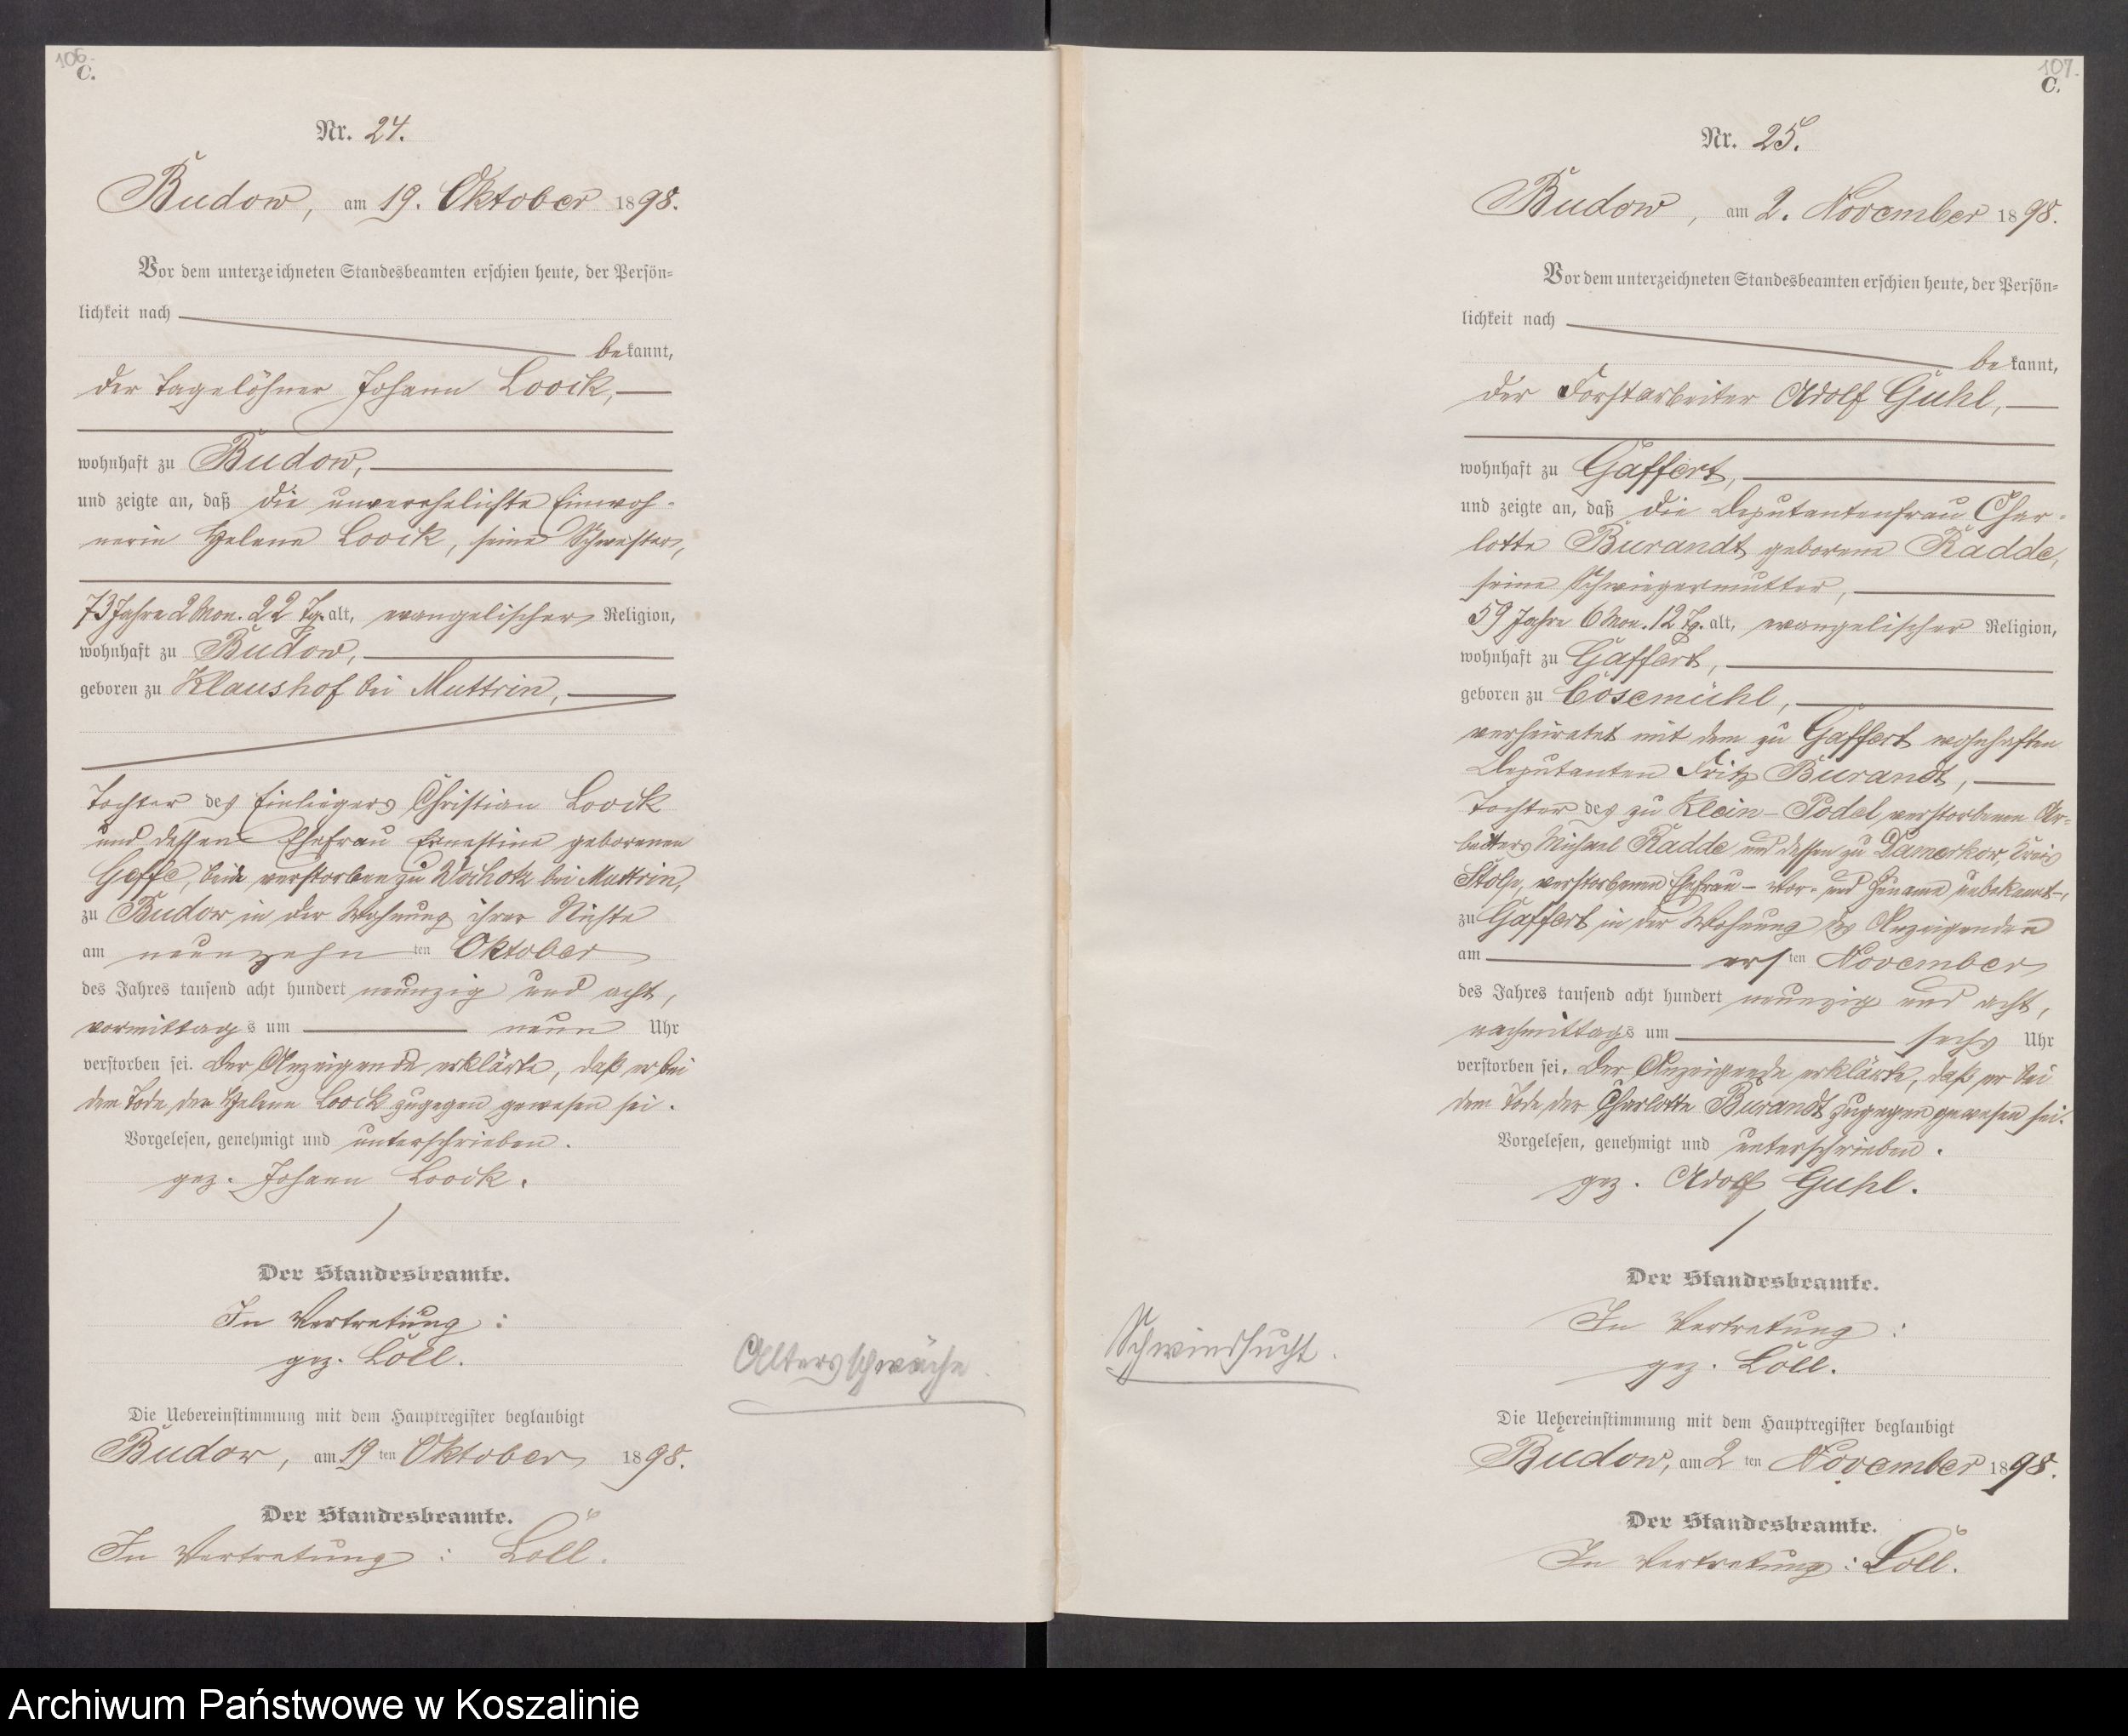 106.
C.
Nr. 24.
Budow, am 19. Oktober 1898.
Vor dem unterzeichneten Standesbeamten erschien heute, der Persön-
lichkeit nach
bekannt,
der Tagelöhner Johann Loock,
wohnhaft zu Budow,
und zeigte an, daß die unverehelichte Einwoh-
nerin Helene Loock, seine Schwester,
73 Jahre 2 Mon. 22 Tg. alt, evangelischer Religion,
wohnhaft zu Budow,
geboren zu Klaushof bei Muttrin,
Tochter des Einliegers Christian Loock
und dessen Ehefrau Ernestine geborenen
beide verstorben zu bei Muttrin,
zu Budow in der Wohnung ihrer Nichte
am neunzehn ten Oktober
des Jahres tausend acht hundert neunzig und acht,
vormittags um neun Uhr
verstorben sei. Der Anzeigende erklärte, daß er bei
dem Tode der Helene Loock zugegen gewesen sei.
Vorgelesen, genehmigt und unterschrieben.
gez. Johann Loock.
Der Standesbeamte.
In Vertretung:
gez. Löll.
Die Uebereinstimmung mit dem Hauptregister beglaubigt
Budow, am 19 ten Oktober 1898.
Der Standesbeamte.
In Vertretung: Löll.
Altersschwäche.
107.
C.
Nr. 25.
Budow, am 2. November 1898.
Vor dem unterzeichneten Standesbeamten erschien heute, der Persön-
lichkeit nach
bekannt,
der Forstarbeiter Adolf Guhl,
wohnhaft zu Gaffert,
und zeigte an, daß die Deputantenfrau Char-
lotte Burandt geborene Radde,
seine Schwiegermutter,
59 Jahre 6 Mon. 12 Tg. alt, evangelischer Religion,
wohnhaft zu Gaffert,
geboren zu Cosemühl,
verheiratet mit dem zu Gaffert wohnhaften
Deputanten Fritz Burandt,
Tochter des zu Klein-Podel verstorbenen Ar-
beiters Michael Radde und dessen zu Damerkow, Kreis
Stolp, verstorbenen Ehefrau – Vor- und Zuname unbekannt –,
zu Gaffert in der Wohnung des Anzeigenden
am ersten November
des Jahres tausend acht hundert neunzig und acht,
nachmittags um sechs Uhr
verstorben sei. Der Anzeigende erklärte, daß er bei
dem Tode der Charlotte Burandt zugegen gewesen sei.
Vorgelesen, genehmigt und unterschrieben.
gez. Adolf Guhl.
Der Standesbeamte.
In Vertretung:
gez. Löll.
Schwindsucht.
Die Uebereinstimmung mit dem Hauptregister beglaubigt
Budow, am 2 ten November 1898.
Der Standesbeamte.
In Vertretung: Löll.
Archiwum Państwowe w Koszalinie